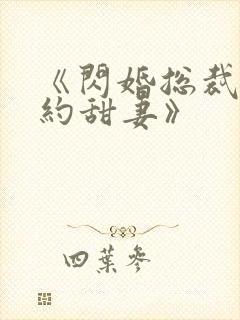 《閃婚总裁
約甜妻》
四葉參